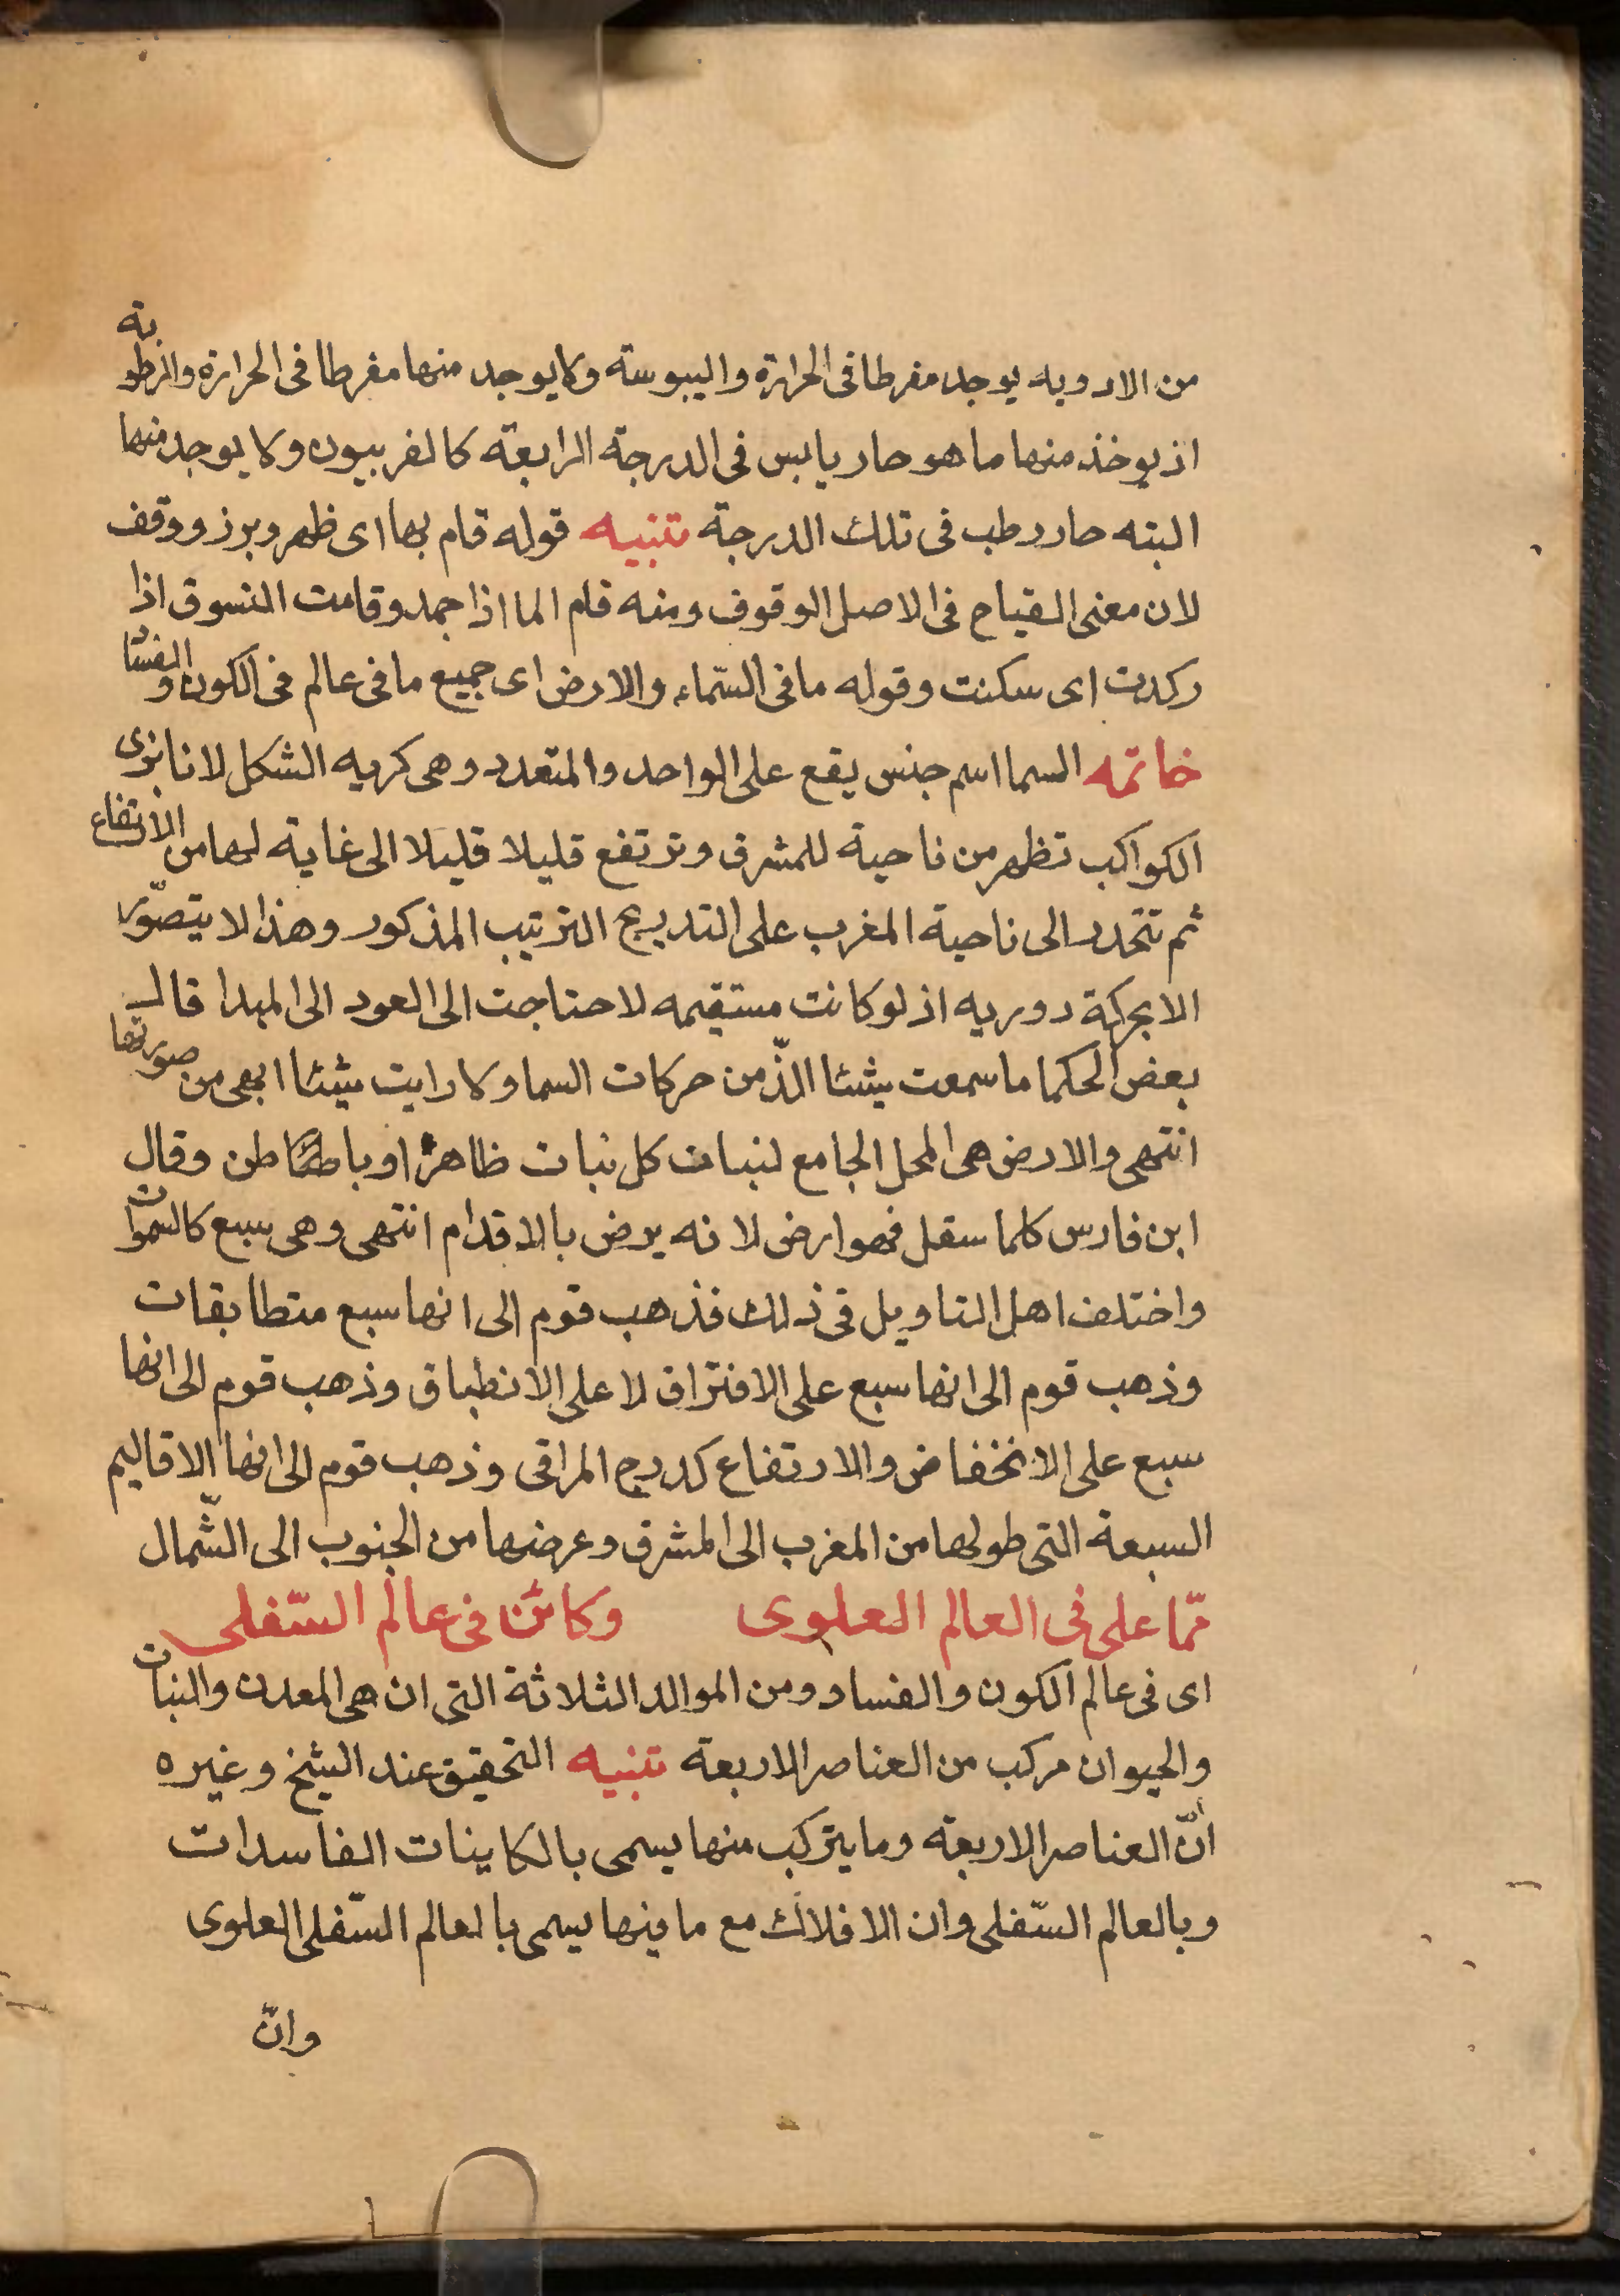 من الادويه يوجد مفرطا فى الحرارة واليبوسة ولا يوجد منها مفرطا فى الحرارة والرطوبة
اذ يوخذ منها ما هو حار يابس فى الدرجة الرابعة كالفربيون ولا يوجد منها
البته حار رطب فى تلك الدرجة تنبيه قوله قام بها اى ظهر وبرز ووقف
لان معنى القيام فى الاصل الوقوف ومنه قام الما اذا جمد وقامت السوق اذا
ركدت اى سكنت وقوله ما فى السّماء والارض اى جميع ما فى عالم فى الكون والفساد
خاتمه السما اسم جنس يقع على الواحد والمتعدد وهى كريه الشكل لانا نرى
الكواكب تظهر من ناحية للمشرق وترتفع قليلا قليلا الى غاية لها من الارتفاع
ثم تنحدر الى ناحية المغرب على التدريج الترتيب المذكور وهذا لا يتصوّر
الا بحركة دوريه اذ لو كانت مستقيمه لاحتاجت الى العود الى المبدا قال
بعض الحكما ما سمعت شيئا الذّ من حركات السما ولا رايت شيئا ابهى من صورتها
انتهى والارض هى المحل الجامع لنبات كل نبات ظاهر او باطن وقال
ابن فارس كلما سفل فهو ارض لانه يرض بالاقدام انتهى وهى سبع كالسموات
واختلف اهل التاويل فى ذلك فذهب قوم الى انها سبع متطابقات
وذهب قوم الى انها سبع على الافتراق لا على الانطباق وذهب قوم الى انها
سبع على الانخفاض والارتفاع كدرج المراقى وذهب قوم الى انها الاقاليم
السبعة التى طولها من المغرب الى المشرق وعرضها من الجنوب الى الشّمال
ممّا على فى العالم العلوى وكائن فى عالم السّفلى
اى فى عالم الكون والفساد ومن الموالد الثلاثة التى ان هى المعدن والنبات
والحيوان مركب من العناصر الاربعة تنبيه التحقيق عند الشيخ وغيره
انّ العناصر الاربعة وما يتركب منها يسمى بالكاينات الفاسدات
وبالعالم السّفلى وان الافلاك مع ما فيها يسمى بالعالم السّفلى العلوى
وانّ